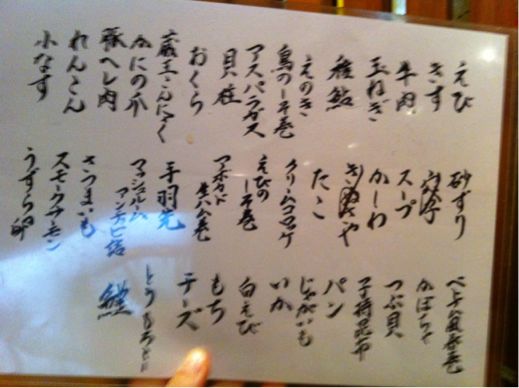 えび
きす
牛肉
玉ねぎ
稚鮎
えのき
鳥のしそ巻
アスパラガス
貝柱
おくら
蔵王こんにゃく
かにの爪
豚ヘレ肉
れんこん
小なす
砂ずり
スープ
かしわ
たこ
クリームコロッケ
えびの
しそ巻
アボカド
生ハム巻
手羽先
マッシュルーム
アンチョビ詰
さつまいも
スモークサーモン
うずら卵
ベトナム風春巻
かぼちゃ
つぶ貝
子持昆布
パン
じゃがいも
いか
白えび
もち
チーズ
とうもろこし
鮭